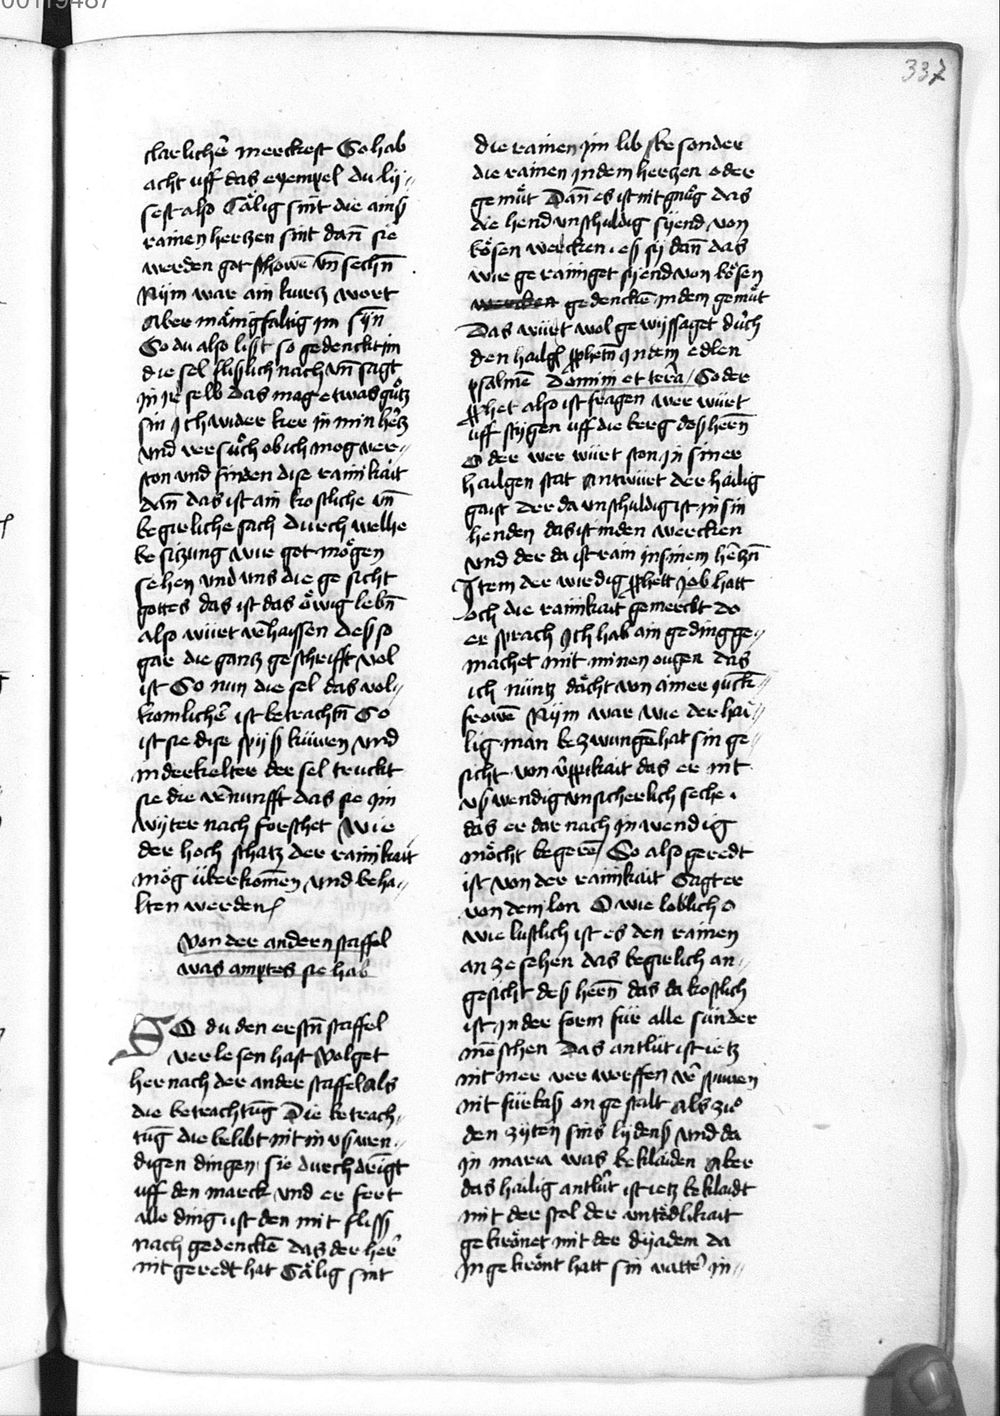 00119487
337
clarlicher̄ merckest So hab
acht uff das exempel du lÿ„
sest also Sälig sint die ains
rainen hertzen sint dan̄ sie
werden got schowē vn̄ sechn̄
Nÿm war ain kurtz wort
Aber mänigfaltig im sÿn̄
So du also lisst so gedenckt in
die sel flisslich nach vn̄ sagt
in ir selb das mag etwas gůtz
sin Ich wider ker in min hertz
vnd versůch ob ich mog ver„
ston vnd finden dise rainikait
dan̄ das ist ain kostliche vn̄
begirliche sach durch welhe
besitzung wir got mögen
sehen vnd vns die gesicht
gottes das ist das öwig lebn̄
also würt v̄haissen dess so
gar die gantz geschrifft vol
ist So nun die sel das vol„
komlicher̄ ist betrachtn̄ So
ist sie dise spijs küwen vnd
in der kelter der sel truckt
sie die v̄nunfft das sie im
wÿter nach forschet Wie
der hoch schatz der rainikait
mög überkomen̄ vnd beha„
lten werden
Von der andern staffel
was amptes sie hab
SO du den erstn̄ staffel
verlesen hast Volget
her nach der ander staffel Als
die betrachtūg Die betrach„
tūg die belibt nit in vsswen„
digen dingen sie durchdringt
uff den marck vnd er fert
alle ding ist den mit fliss
nach gedenckē das der her̄
nit geredt hat Sälig sint
die rainen im lib sbe sonder
die rainen in dem hertzen oder
gemüt Dan̄ es ist nit gnůg das
die hend vnschuldig sÿend von
bösen wercken . es sÿ dan̄ das
wir gerainiget sÿend von bösen
gedenckē in dem gemüt
Das würt wol gewÿssaget durch
den hailgē ꝓphetn̄ in dem edlen
psalmē Domini et terra / So der
ꝓphet also ist fragen wer würt
uff stÿgen uff die berg dess herrn̄
Oder wer würt ston in siner
hailgen stat Antwürt der hailig
gaist Der da vnschuldig ist in sin
henden das ist in den wercken
vnd der da ist rain in sinem hertzn̄
Item der wirdig ꝓphett Job hatt
och die rainikait gemerckt do
er sprach Ich hab ain geding ge„
machet mit minen ougen das
ich nüntz dächt von ainer junck„
frowē Nÿm war wie der hai„
lig man bezwungē hat sin ge„
sicht von üppikait das er nit
vsswendig vnsicherlich seche .
das er dar nach inwendig
möcht begeren̄ / So also geredt
ist von der rainikait Sagt er
von dem lon O wie loblich o
wie lustlich ist es den rainen
an ze sehen das begirlich an„
gesicht dess herrn̄ das da kostlich
ist in der form für alle sünder
menschen Das antlüt ist ietz
nit mer verworffen v̄spüwen
nit fürbass on gestalt als zů
den zÿten sins lÿdens vnd da
in maria was beklaiden Aber
das hailig antlüt ist ietz beklaidt
mit der stol der vntödlikait
gekrönet mit der dÿadem da
in gekrönt hatt sin vatter̄ in„